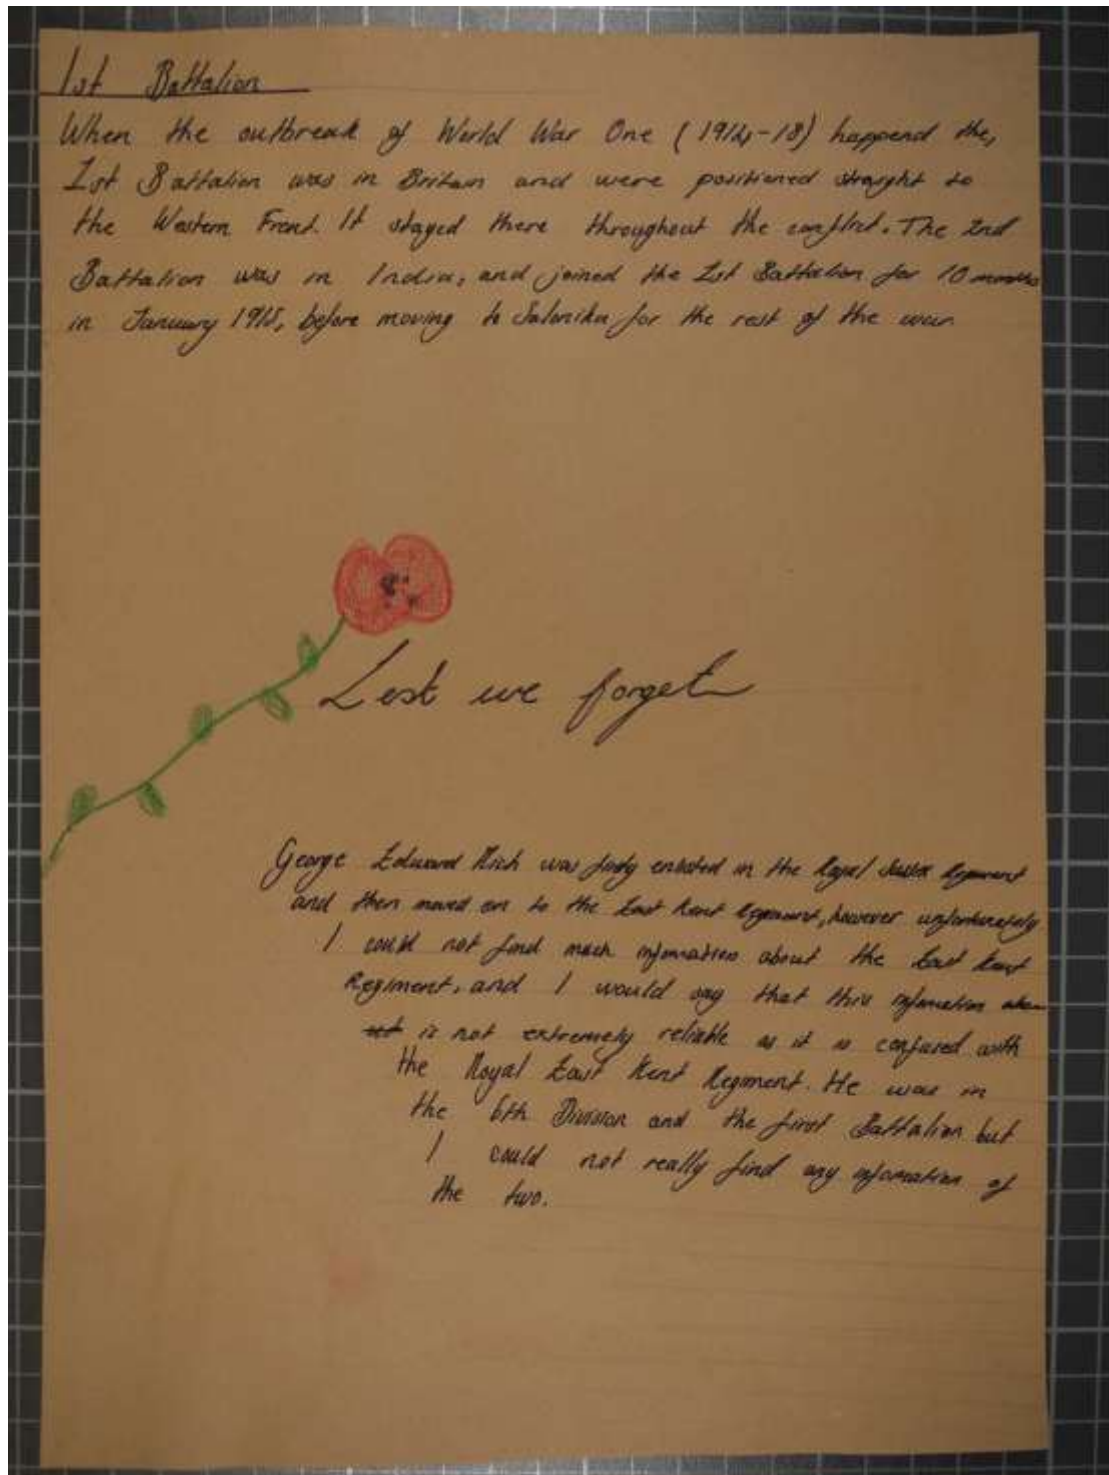 1st Battalion
When the outbreak of World War One (1914-18) happend the,
1st Battalion was in Britain and were positioned straight to
the Western Front. It stayed there throughout the conflict. The 2nd
Battalion was in India, and joined the 1st Battalion for 10 months
in January 1915, before moving to Salonika for the rest of the war.
Lest we forget
George Edward Rich was firstly enlisted in the Royal Sussex Regiment
and then moved on to the East Kent Regiment, however unfortunately
I could not find much information about the East Kent
Regiment, and I would say that this infomation
is not extremely reliable as it is confused with
the Royal East Kent Regiment. He was in
the 6th Division and the first Battalion but
I could not really find any infomation of
the two.